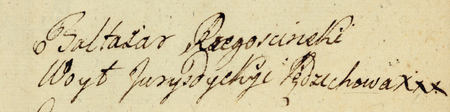 Baltazar Rzegoscinski
Woyt Jurysdykcyi Rdzichowaxxx